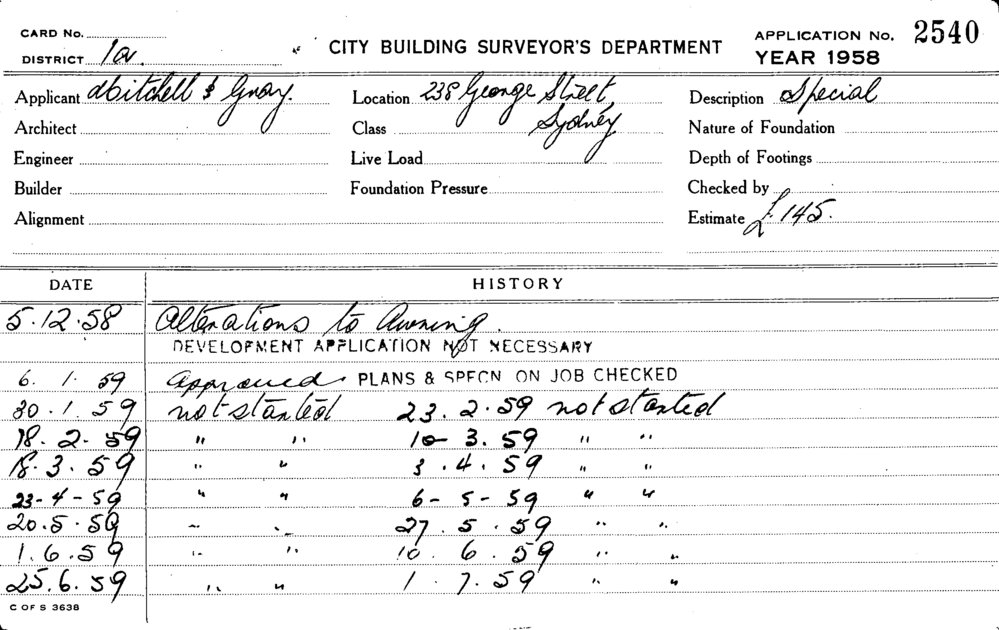 CARD No.
DISTRICT 1a.
CITY BUILDING SURVEYOR'S DEPARTMENT
APPLICATION No. 2540
YEAR 1958
Applicant Mitchell & Gray. Location 238 George Street, Description Special
Architect Class Sydney Nature of Foundation
Engineer Live Load Depth of Footings
Builder Foundation Pressure Checked by
Alignment Estimate £145.
DATE HISTORY
5.12.58 Alterations to Awning.
DEVELOPMENT APPLICATION NOT NECESSARY
6. 1. 59 Approved. PLANS & SPECN ON JOB CHECKED
30.1.59 not started 23.2.59 not started
18.2.59 " " 10-3.59 " "
18.3.59 " " 3.4.59 " "
23-4-59 " " 6-5-59 " "
20.5.59 " " 27.5.59 " "
1.6.59 " " 10.6.59 " "
25.6.59 " " 1.7.59 " "
C OF S 3638